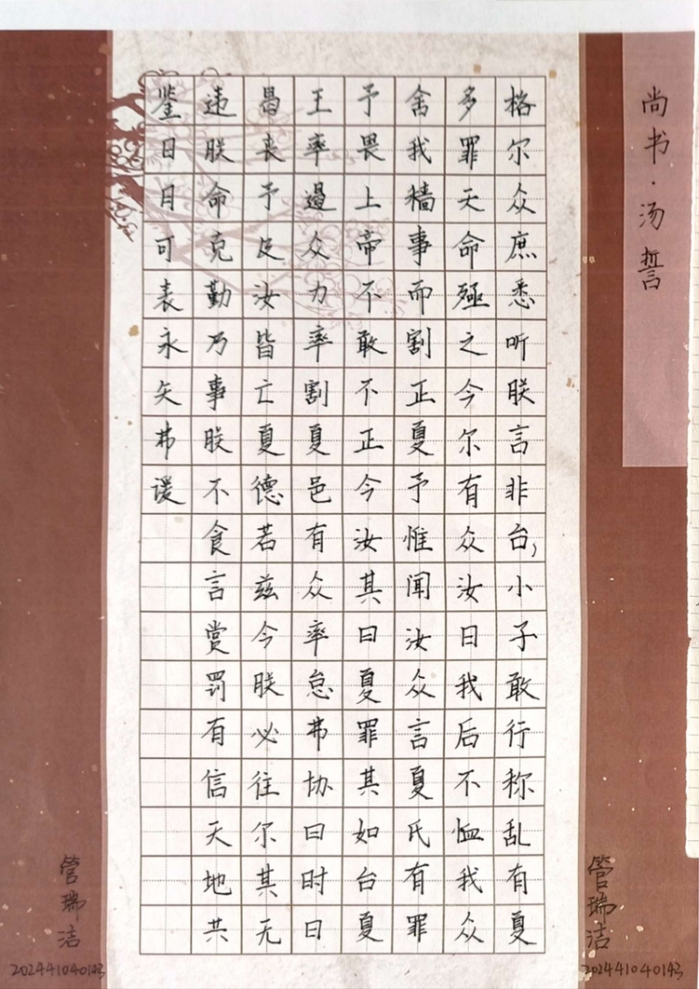 尚书·汤誓
格尔众庶悉听朕言非台,小子敢行称乱有夏
多罪天命殛之今尔有众汝曰我后不恤我众
舍我穑事而割正夏予惟闻汝众言夏氏有罪
予畏上帝不敢不正今汝其曰夏罪其如台夏
王率遏众力率割夏邑有众率怠弗协曰时日
曷丧予及汝皆亡夏德若兹今朕必往尔其无
违朕命克勤乃事朕不食言赏罚有信天地共
鉴日月可表永矢弗谖
管瑞洁
202441040143
管瑞洁
202441040143